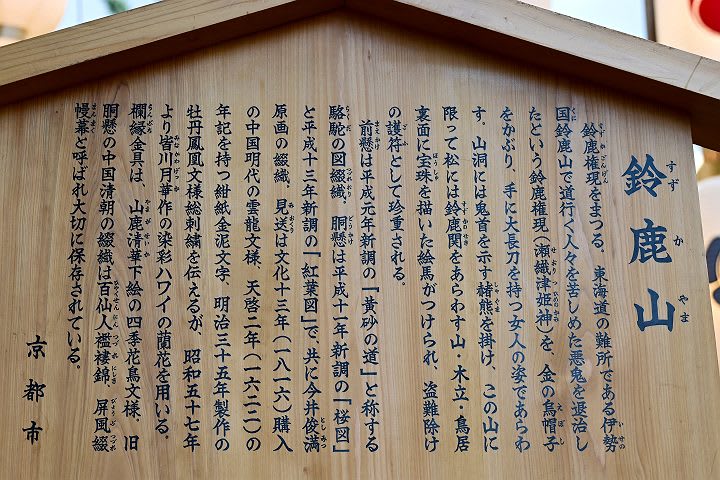 鈴鹿山
鈴鹿権現をまつる。東海道の難所である伊勢
国鈴鹿山で道行く人々を苦しめた悪鬼を退治し
たという鈴鹿権現(瀬織津姫神)を、金の烏帽子
をかぶり、手に大長刀を持つ女人の姿であらわ
す。山洞には鬼首を示す赭熊を掛け、この山に
限って松には鈴鹿関をあらわす山・木立・鳥居
裏面に宝珠を描いた絵馬がつけられ、盗難除け
の護符として珍重される。
前懸は平成元年新調の「黄砂の道」と称する
駱駝の図綴織、胴懸は平成十年新調の「桜図」
と平成十三年新調の「紅葉図」で、共に今井俊満
原画の綴織、見送は文化十三年(一八一六)購入
の中国明代の雲龍文様、天啓二年(一六二二)の
年記を持つ紺紙金泥文字、明治三十五年製作の
牡丹鳳凰文様総刺繍を伝えるが、昭和五十七年
より皆川月華作の染彩ハワイの蘭花を用いる。
欄縁金具は、山鹿清華下絵の四季花鳥文様、旧
胴懸の中国清朝の綴織は百仙人襤褸錦、屏風綴
幔幕と呼ばれ大切に保存されている。
京都市